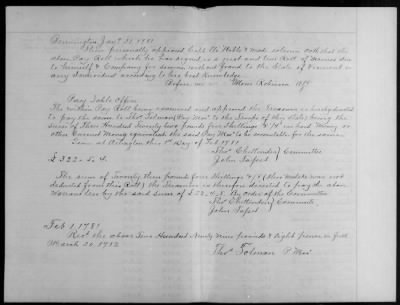 Bennington Jany 31, 1781
Then personally appeared and made solemn oath that the
above Pay Roll which he has signed is a just and true Roll of Names due
to himself & Company for service without fraud to the State of Vermont or
any Individual according to his best Knowledge.
Before me Moses Robinson
Pay Table Office
The within Pay Roll being examined and approved the Treasurer is hereby directed
to pay the same to Thos Tolman Pay Mas' to the Troops of this State; being the
sum of Three Hundred Twenty two pounds five Shillings & /4 in hard Money or
other Current Money equivalent the said Pay Mas' to be accountable for the same.
Given at Arlington this 1st Day of Feb 1781
Thos Chittenden } Committee
John Fassett
£ 322. 5. 4.
The sum of Twenty two pounds four Shillings & /8 (this mistake was not
deducted from this Roll) the Treasurer is therefore directed to pay the above
Warrant less by the said sum of £22.4.8. By order of the Committee
Thos Chittenden } Committee
John Fassett
Feb 1, 1781
Recd the above Two Hundred Ninety nine pounds & Eight pence in full
March 20, 1782
Thos Tolman P. Mas'